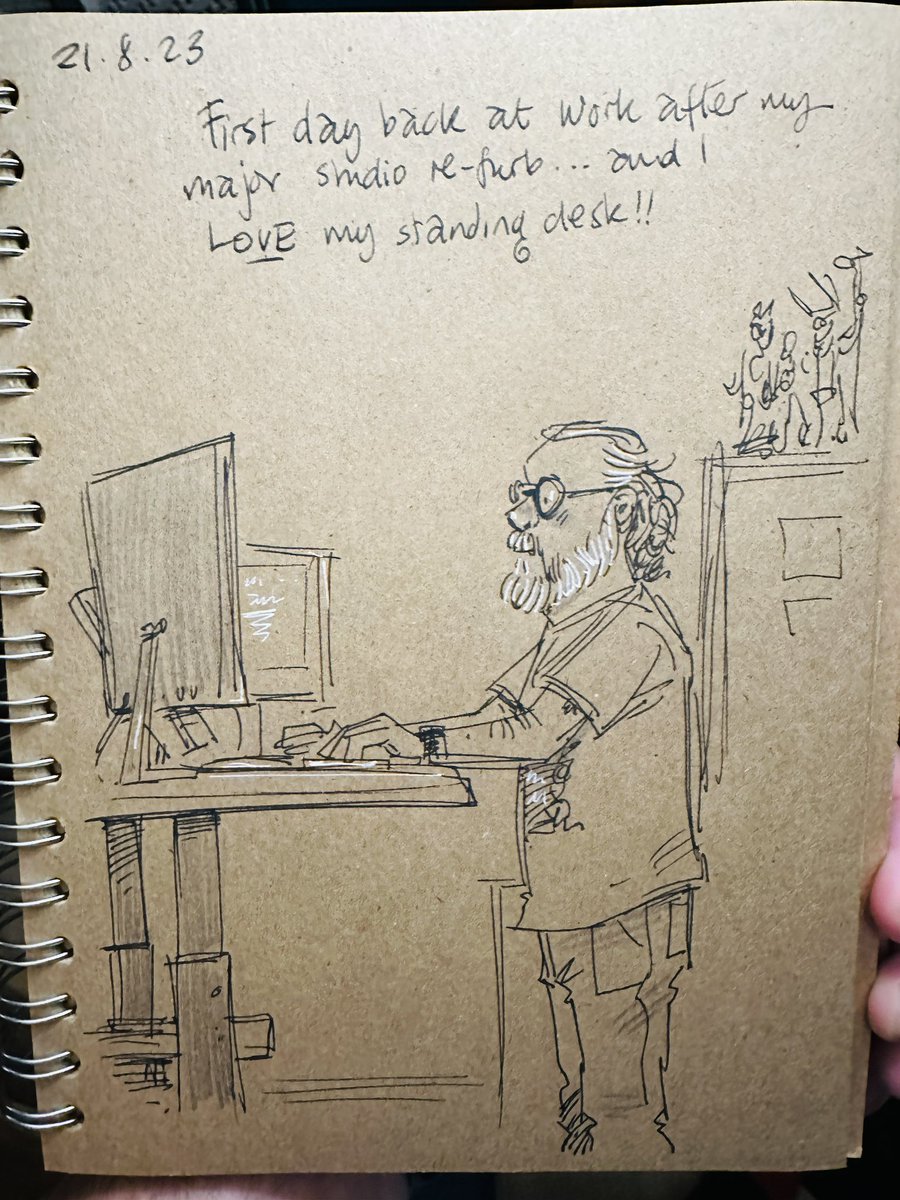 21.8.23
First day back at work after my
major studio re-furb... and I
LOVE my standing desk!!